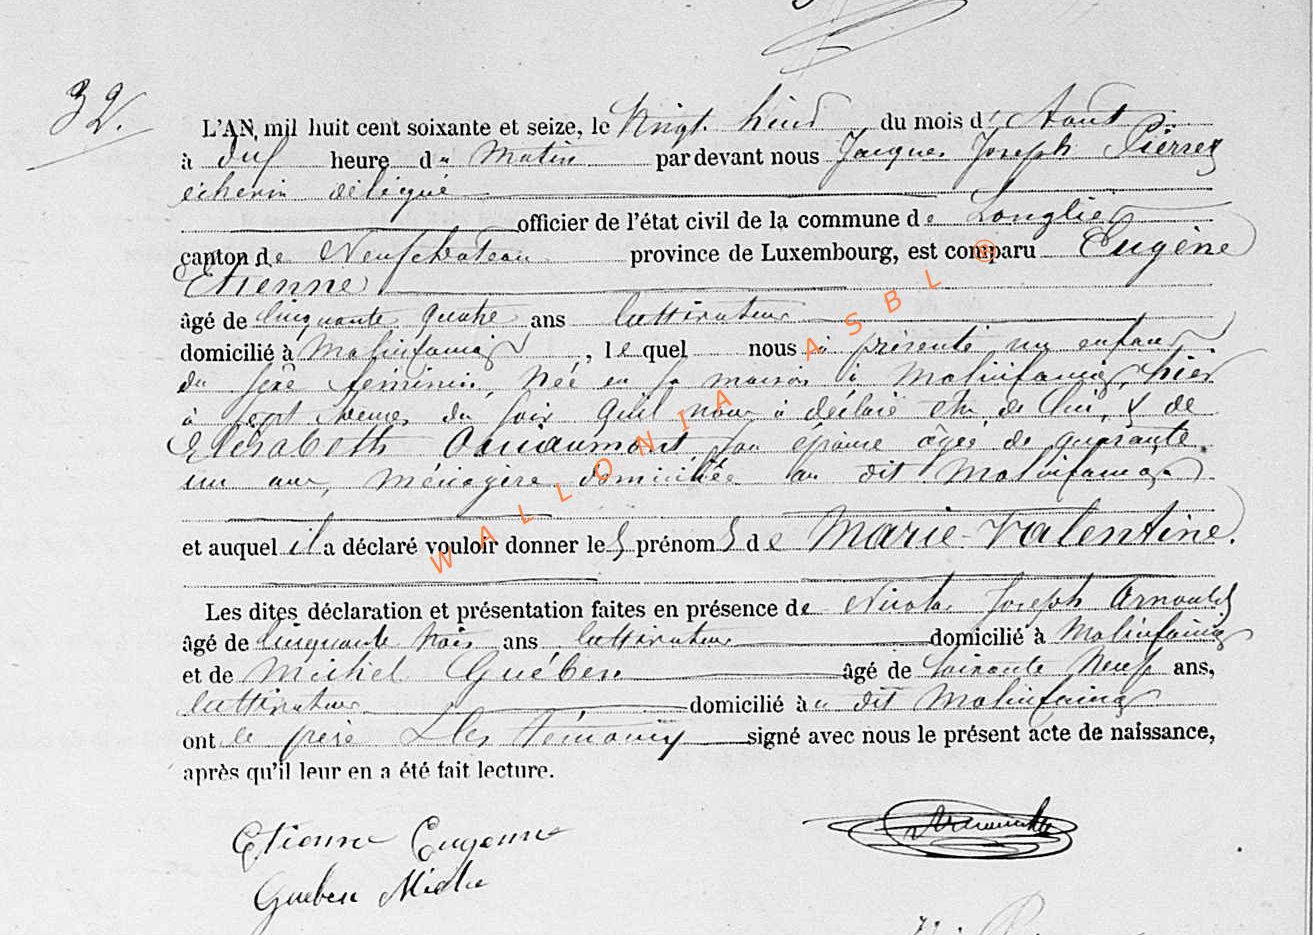 32.
L'AN, mil huit cent soixante et seize, le Vingt huit du mois d'Aout
à dix heure du Matin par devant nous Jacques Joseph Pierret
échevin délégué
officier de l'état civil de la commune de Longlier
canton de Neufchateau province de Luxembourg, est comparu Eugène
Etienne
âgé de Cinquante quatre ans cultivateur
domicilié à Molinfaing, lequel nous a présenté un enfant
du sexe féminin, née en sa maison à Molinfaing, hier
à sept heures du soir qu'il nous a déclaré etre de lui, & de
Elisabeth son épouse âgée de quarante
un ans, ménagère domiciliée au dit Molinfaing
et auquel il a déclaré vouloir donner les prénoms de Marie-Valentine.
Les dites déclaration et présentation faites en présence de Nicolas Joseph Arnould
âgé de cinquante trois ans cultivateur domicilié à Molinfaing
et de Michel Guében âgé de soixante Neuf ans,
cultivateur domicilié au dit Molinfaing
ont le père & les témoins signé avec nous le présent acte de naissance,
après qu'il leur en a été fait lecture.
Etienne Eugenne
Gueben Michel
WALLONIA ASBL ®